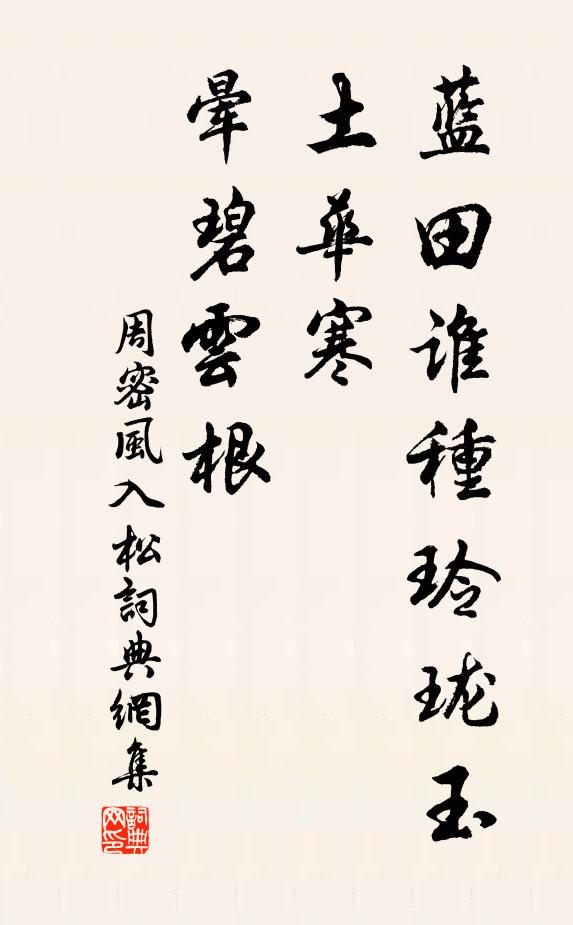 蓝田谁種玲珑玉
土華寒
暈碧雲根
周密風入松詞典網集
詞典網印